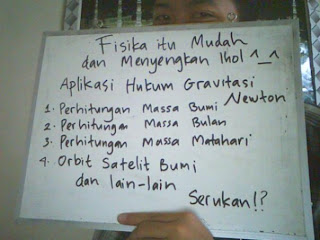 Fisika itu Mudah
dan Menyengkan lhol ^_^
Aplikasi Hukum Gravitasi
Newton
1. Perhitungan Massa Bumi
2. Perhitungan Massa Bulan
3. Perhitungan Massa Matahari
4. Orbit Satelit Bumi
dan lain-lain
Serukan!?